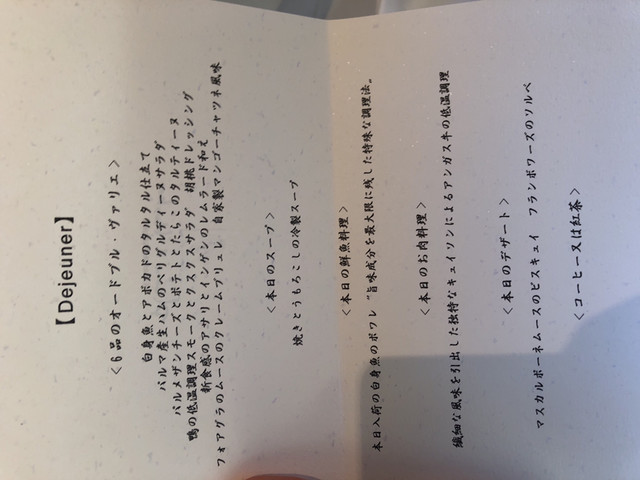 【Dejeuner】
＜6品のオードブル・ヴァリエ＞
白身魚とアボカドのタルタル仕立て
パルマ産生ハムのペリグルディーヌサラダ
パルメザンチーズとポテトとたらこのタルティーヌ
鴨の低温調理スモークとクスクスサラダ 胡桃ドレッシング
新食感のアサリとインゲンのレムラード和え
フォアグラのムースのクレームブリュレ 自家製マンゴーチャツネ風味
＜本日のスープ＞
焼きとうもろこしの冷製スープ
＜本日の鮮魚料理＞
本日入荷の白身魚のポワレ “旨味成分を最大限に残した特殊な調理法。
＜本日のお肉料理＞
繊細な風味を引出した独特なキュイソンによるアンガス牛の低温調理
＜本日のデザート＞
マスカルポーネムースのビスキュイ フランボワーズのソルベ
＜コーヒー又は紅茶＞